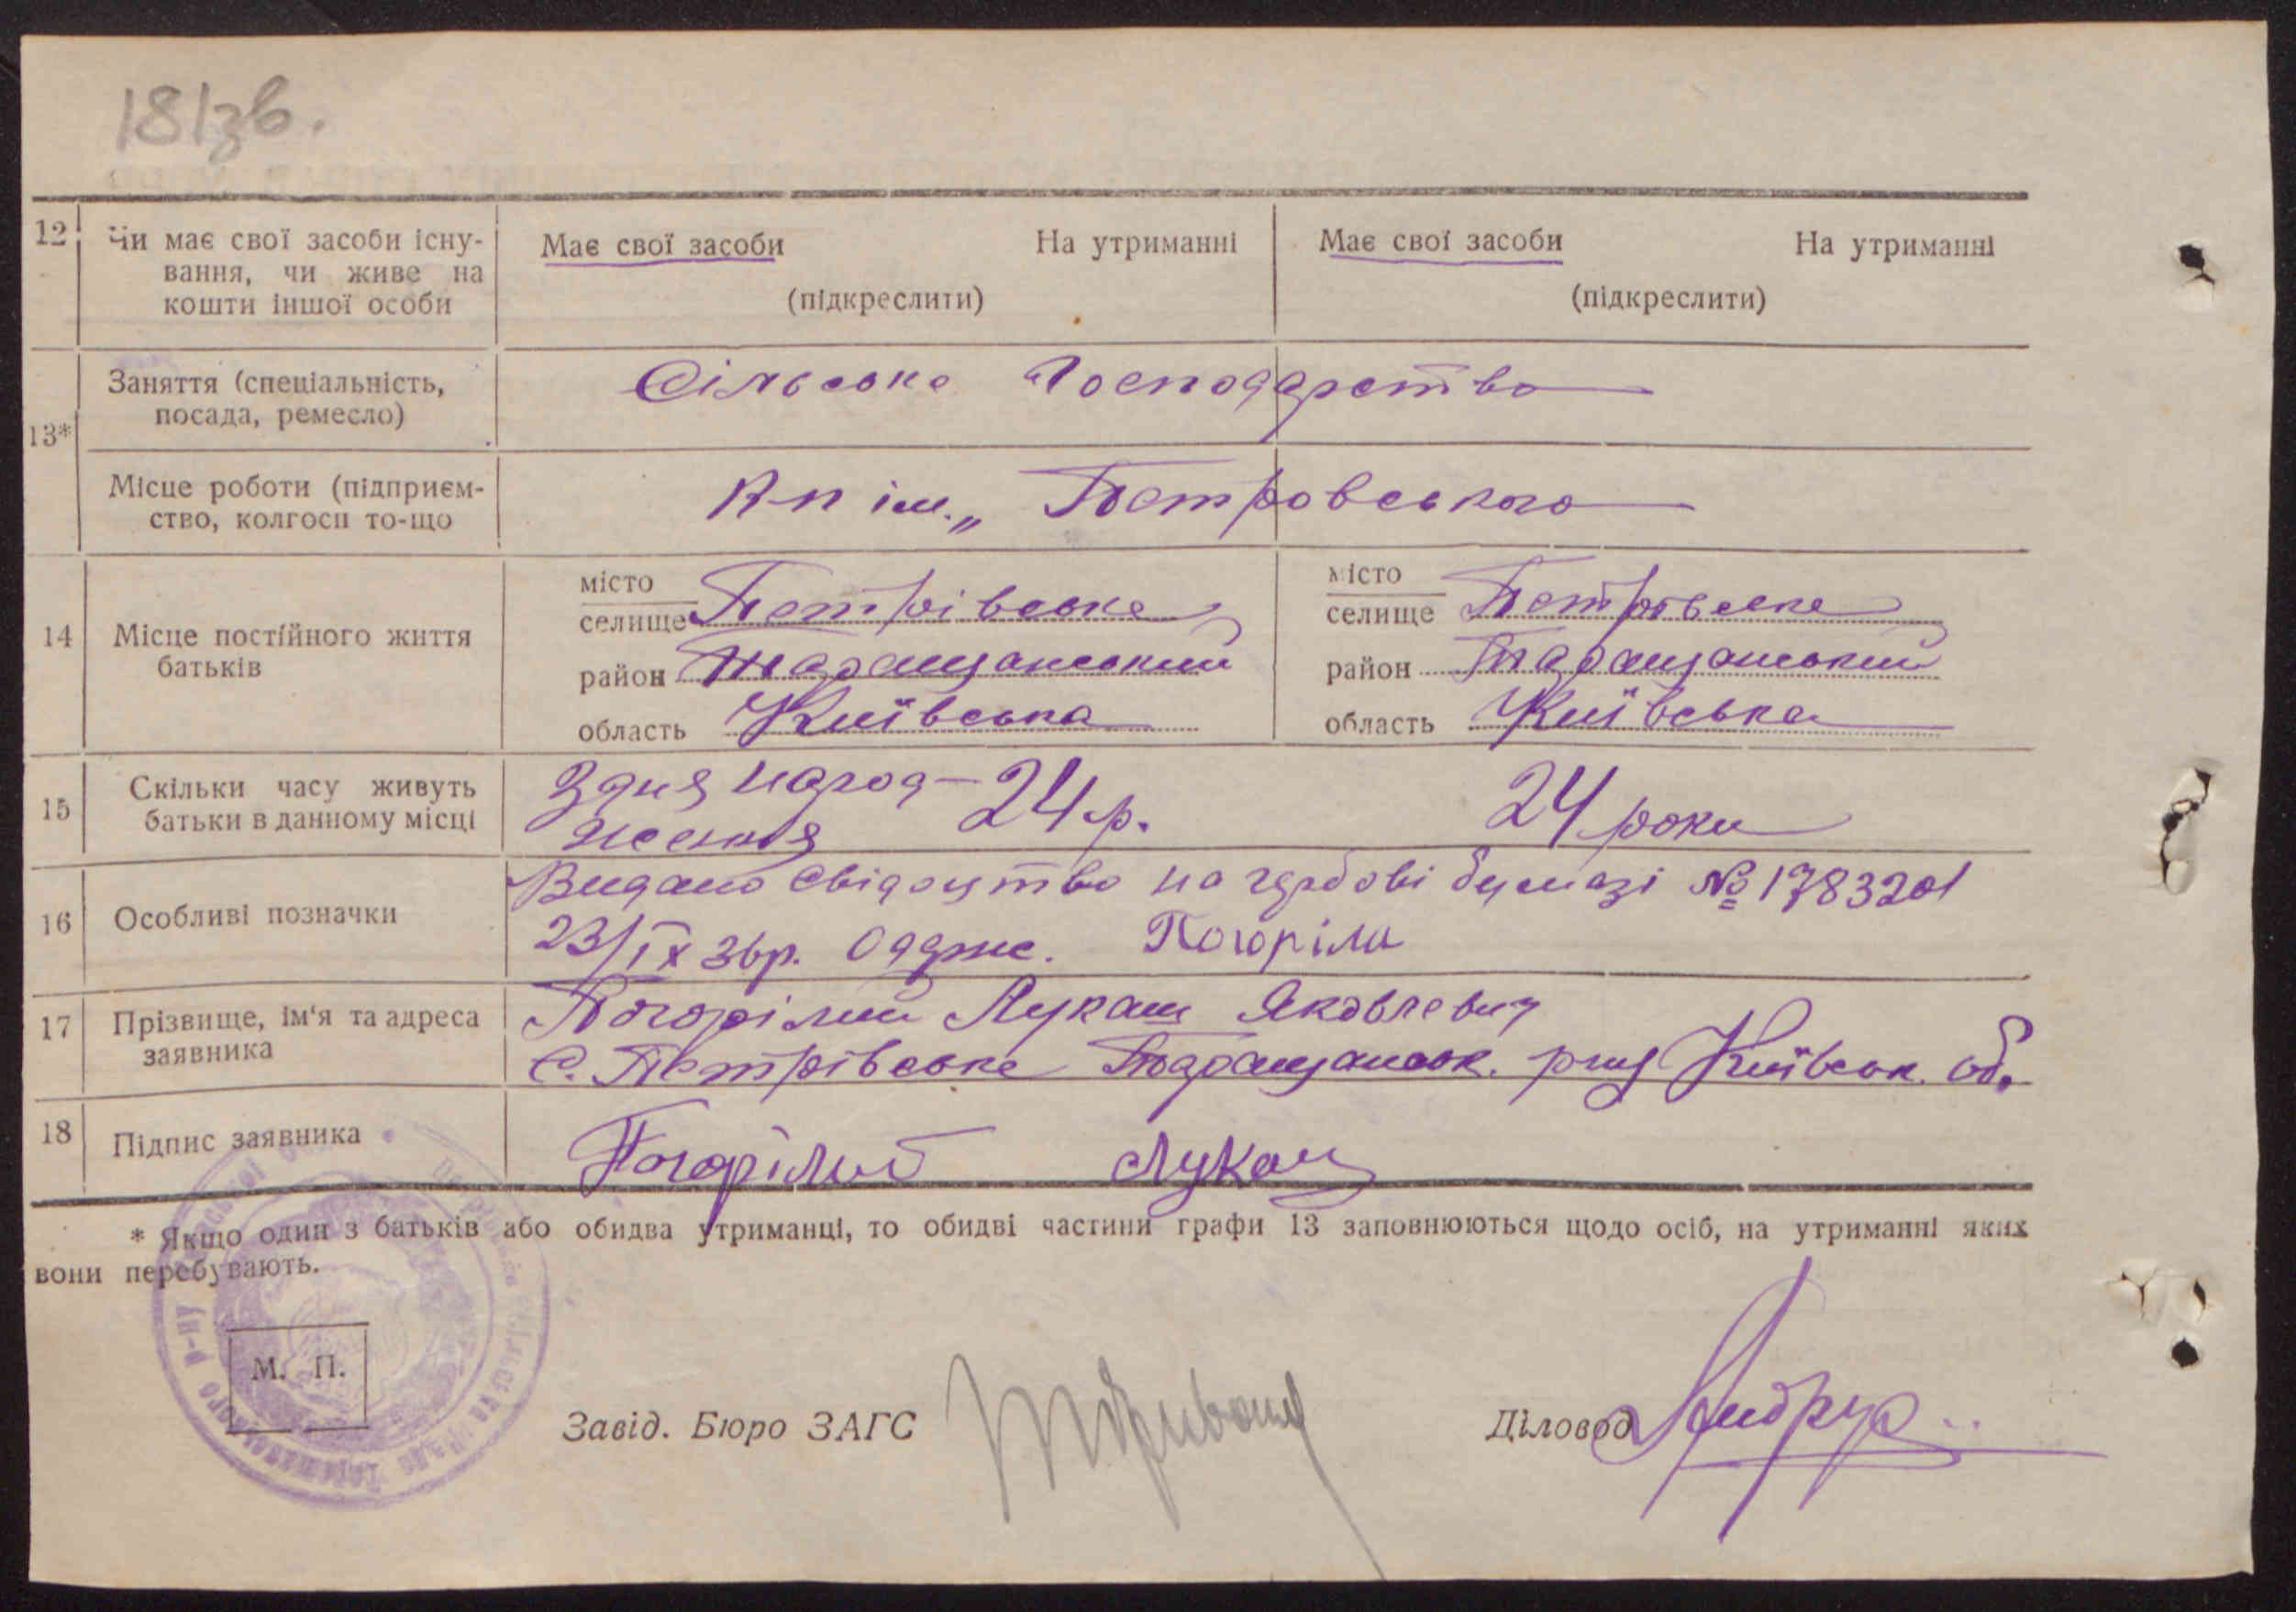 181зв.
12 Чи має свої засоби існу- Має свої засоби На утриманні Має свої засоби На утриманні
вання, чи живе на
кошти іншої особи (підкреслити) (підкреслити)
Заняття (спеціальність, Сільське Господарство
посада, ремесло)
13*
Місце роботи (підприєм- К-п ім. „ Петровського
ство, колгосп то-що
14 Місце постійного життя
батьків
місто
селище Петрівське
район Таращанський
область Київська
місто
селище Петровське
район Таращанський
область Київська
15 Скільки часу живуть З дня народ- 24 р. 24 роки
батьки в данному місці ження
16 Особливі позначки Видано свідоцтво на гербові бумазі № 1783201
23/IX 36р. Погоріли
17 Прізвище, ім'я та адреса Погорілий Лукаш Яковлевич
заявника С. Петрівське Таращанськ. р-ну Київськ. об.
18 Підпис заявника Погорілий Лукаш
* Якщо один з батьків або обидва утриманці, то обидві частини графи 13 заповнюються щодо осіб, на утриманні яких
вони перебувають.
М. П.
Завід. Бюро ЗАГС Діловод